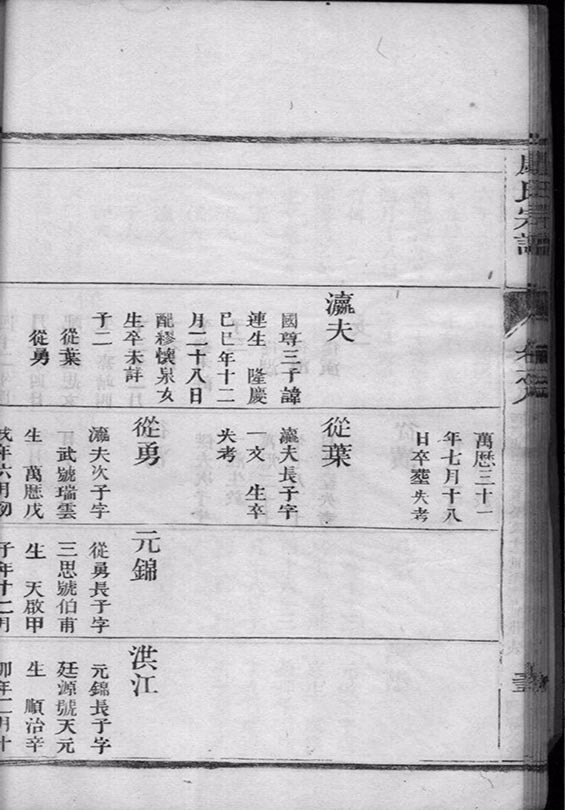 氏宗譜
瀛夫
國尊三子諱
連生 隆慶
己巳年十二
月二十八日
配繆懷泉女
生卒未詳
子二
從葉
從勇
萬歷三十一
年七月十八
日卒塟失考
從葉
瀛夫長子字
一文 生卒
失考
從勇
瀛夫次子字
一武號瑞雲
生 萬歷戊
戌年六月初
元錦
從勇長子字
三思號伯甫
生 天啟甲
子年十二月
洪江
元錦長子字
廷源號天元
生 順治辛
卯年二月十